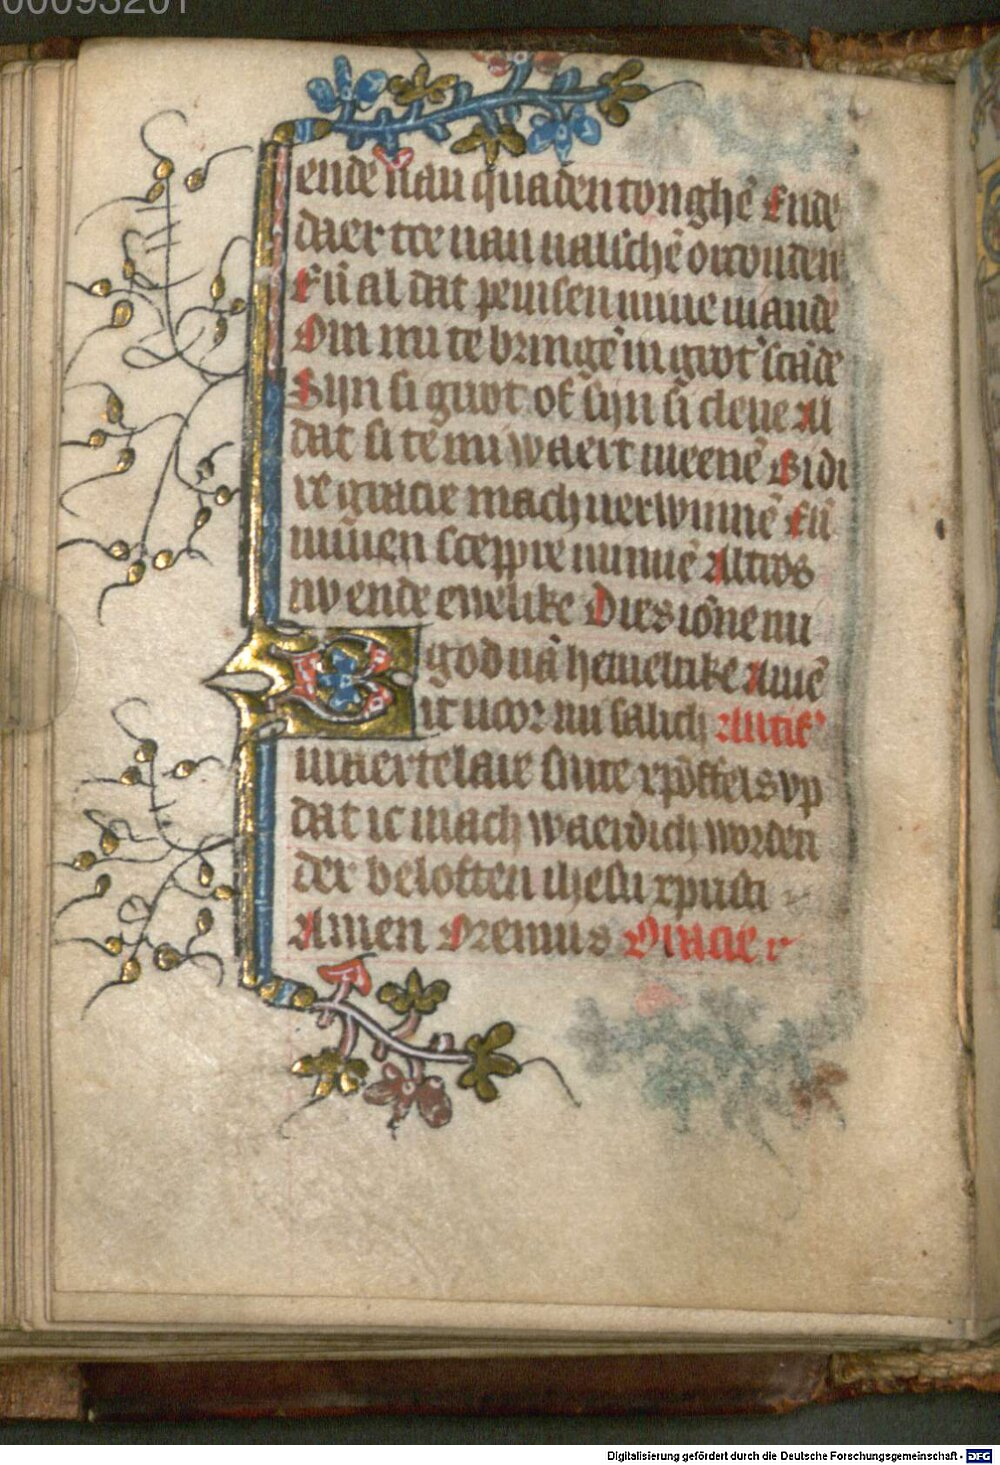 00093201
ende van quaden tonghē Ende
daer toe van valschē orconden
Eñ al dat peinsen mine viande
Om mi te bringē in groot scāde
Sijn si groot of sijn si cleue Al
dat si te mi waert meenē Bi di
re gracie mach verwinnē Eñ
sceppre Altoos
nv ende ewelike Dies iōne mi
god vā hemelrike Amē
it voor mi salich Antif'
maertelare sinte xpōffels vp
dat ic mach waerdich worden
der beloften ihesu xpristi
Amen Oremus Oracie
Digitalisierung gefördert durch die Deutsche Forschungsgemeinschaft - DFG